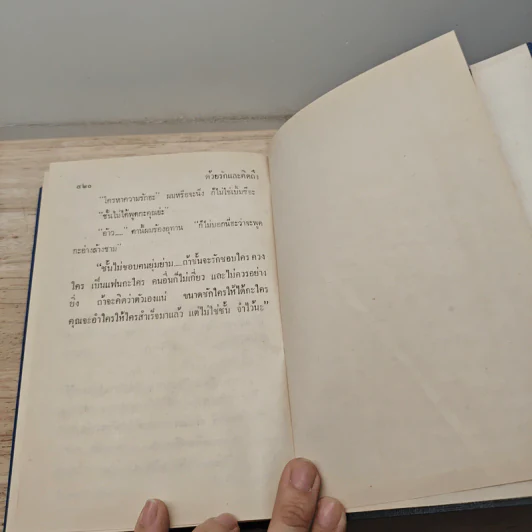 ๘๒๑ ด้วยรักและคิดถึง
"ใครหาความรักฮะ" ผมหรือจะนิ่ง ก็ไม่ใช่เป็นซีฮะ
"ชั้นไม่ได้พูดกะคุณย่ะ"
"อ้าว...." คานี้ผมร้องอุทาน "ก็ไม่บอกนี่ฮะว่าจะพูด
กะอ่างล้างชาม"
"ชั้นไม่ชอบคนยุ่มย่าม....ถ้าชั้นจะรักชอบใคร ควง
ใคร เป็นแฟนกะใคร คนอื่นก็ไม่เกี่ยว และไม่ควรอย่าง
ยิ่ง ถ้าจะคิดว่าตัวเองแน่ ขนาดชักใครให้ได้กะใคร
คุณจะยำใครให้ใครสำเร็จมาแล้ว แต่ไม่ใช่ชั้น จำไว้นะ"